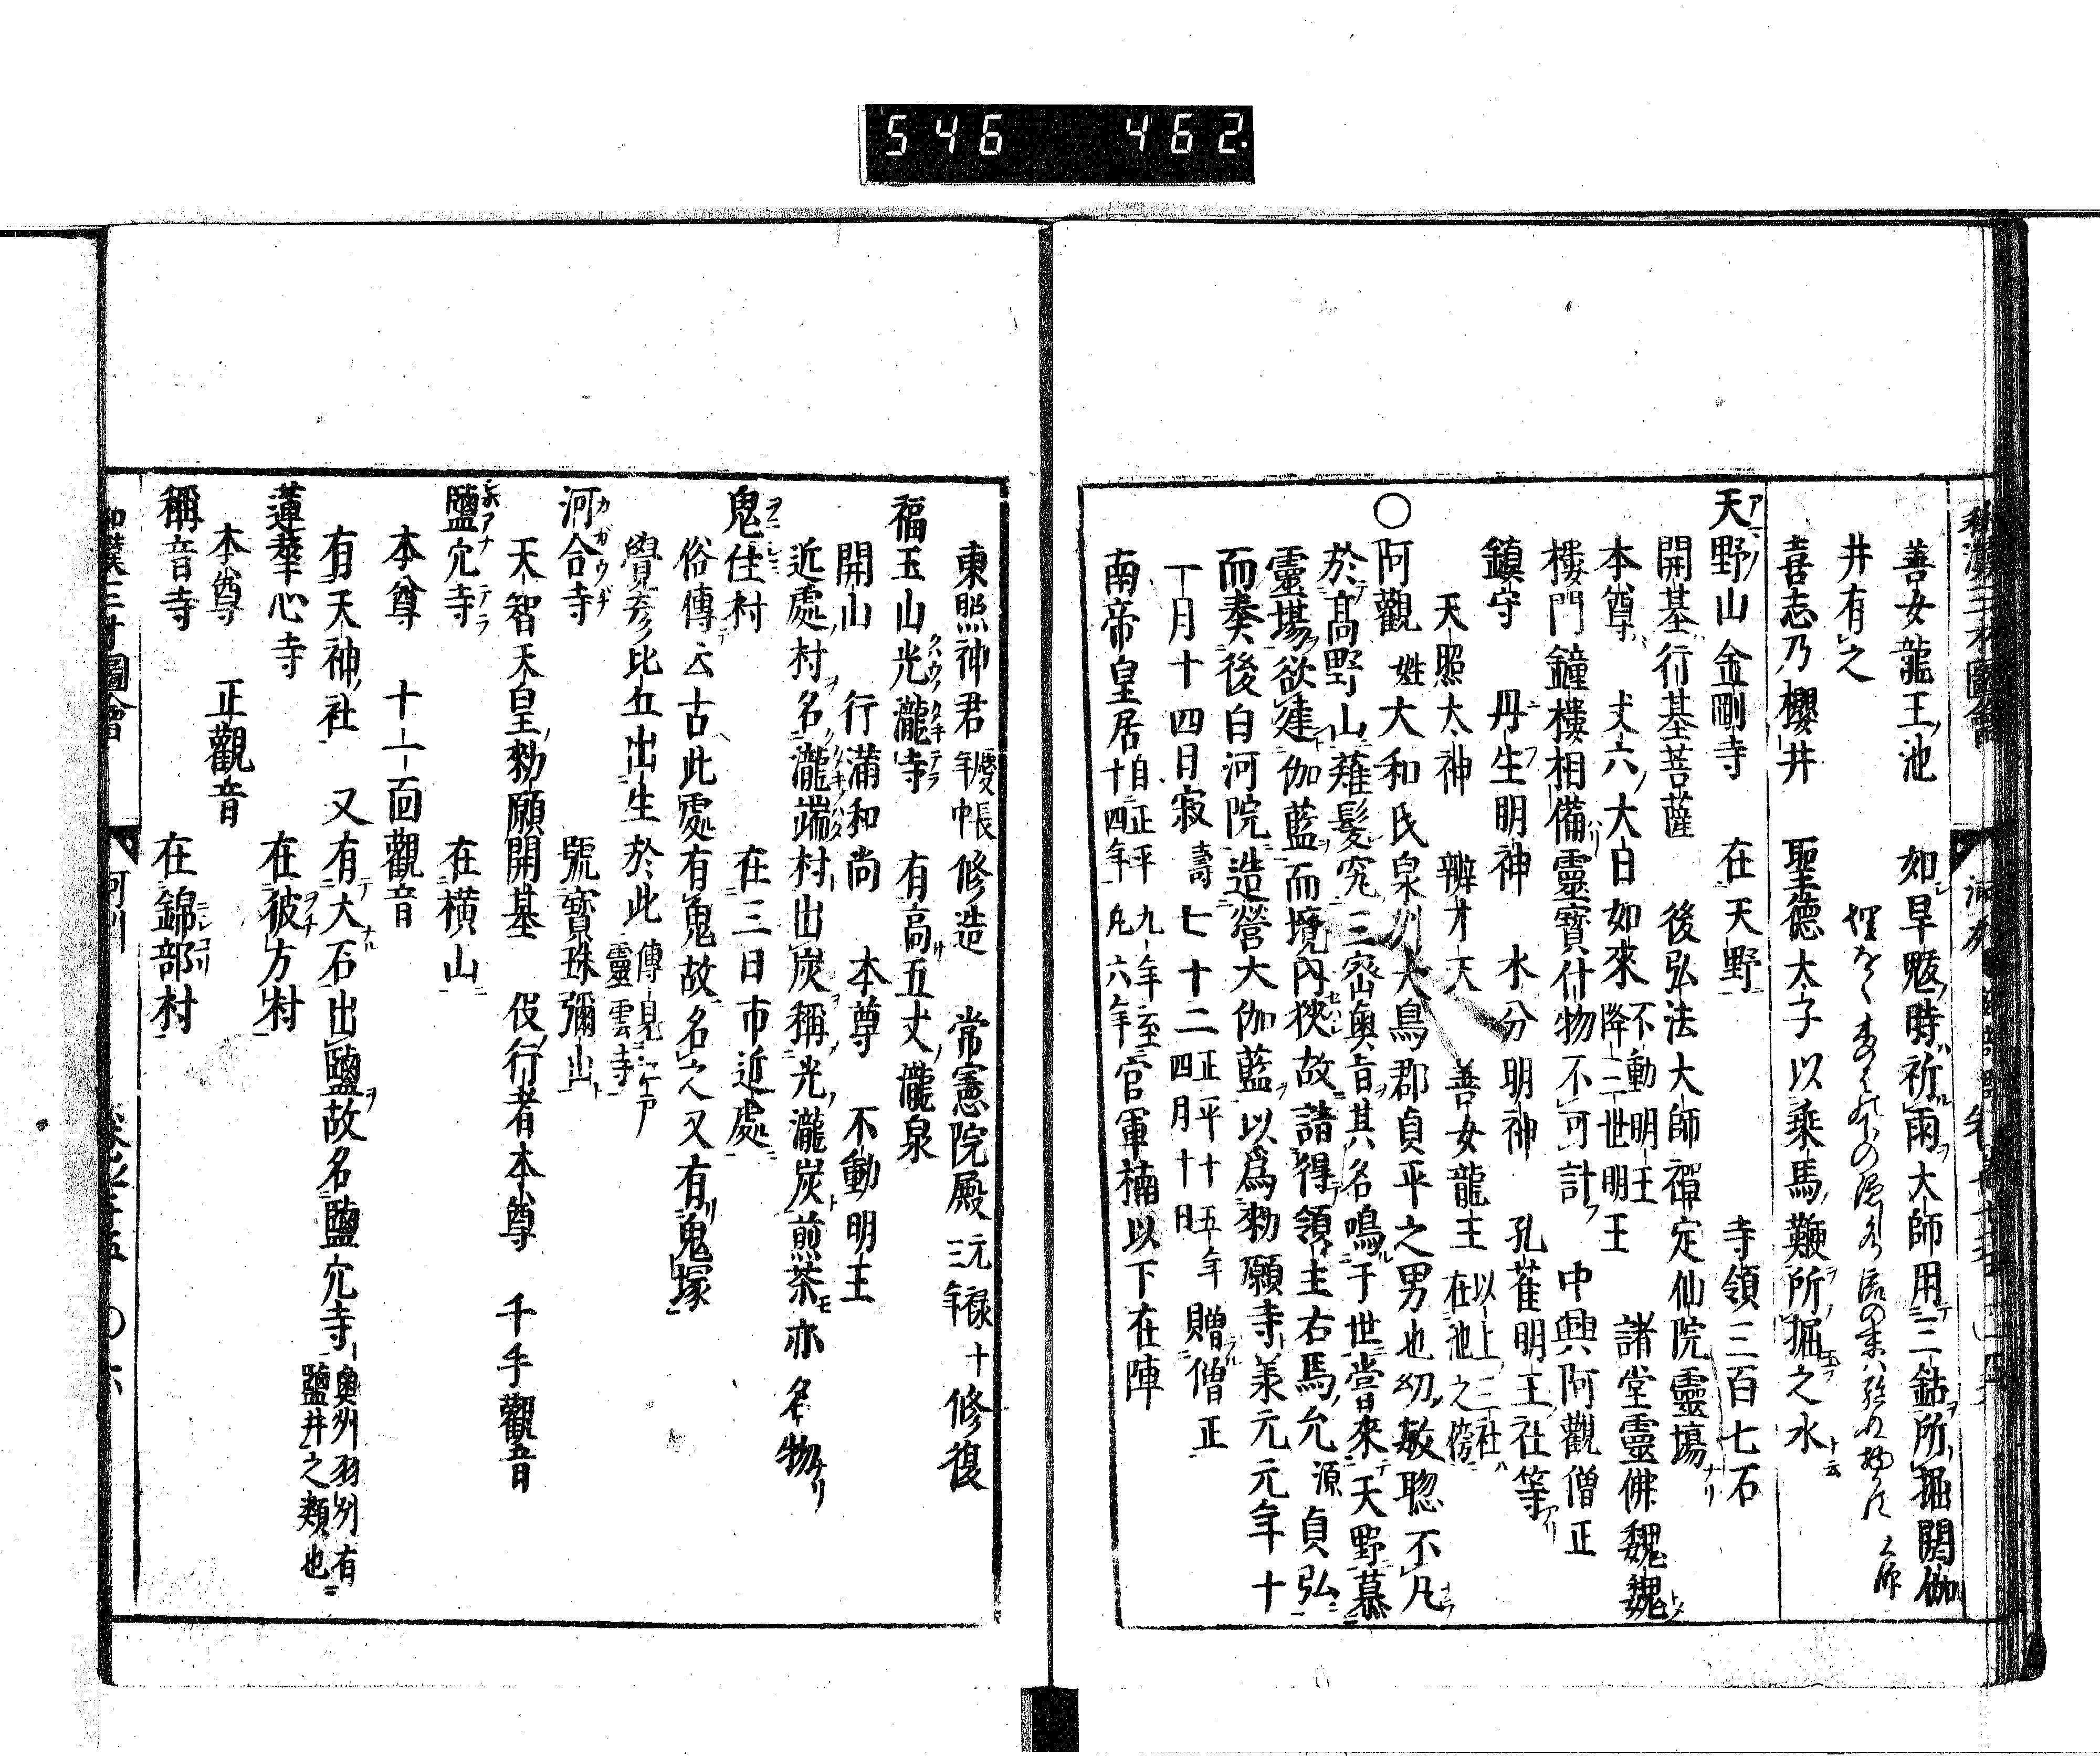 546 462.
善女龍王池 如旱魃時祈雨大師用三鈷所掘閼伽
井有之
喜志乃櫻井 聖德太子以乘馬鞭所掘之水ト云
天野山金剛寺 在天野 寺領三百七石
開基行基菩薩 後弘法大師禪定仙院靈場ナリ
本尊 丈六大日如來 不動明王 降三世明王 諸堂靈佛魏魏
樓門鐘樓相備靈寶什物不可計 中興阿觀僧正
鎮守 丹生明神 水分明神 孔雀明王社等
天照太神 辨才天 善女龍王 以上三社ハ在池之傍
○阿觀 姓大和氏泉州大鳥郡貞平之男也幼敏聰不凡
於高野山薙髮究三密奧旨其名鳴于世嘗來天野慕
靈場欲建伽藍而境內狹故請得領主右馬允源貞弘
而奏後白河院造營大伽藍以爲勅願寺羕元元年十
一月十四日寂 壽七十二 正平十五年四月十日贈僧正
南帝皇居 自正平九年至十四年凡六年 官軍楠以下在陣
東照神君 慶帳年 修造 常憲院殿 元祿十三年 修復
福玉山光瀧寺 有高五丈瀧泉
開山 行蒲和尚 本尊 不動明王
近處村名瀧端村出炭稱光瀧炭煎茶亦名物ナリ
鬼住村 在三日市近處
俗傳云古此處有鬼故名之又有鬼塚
覺彦比丘出生於此 傳見江戸靈雲寺
河合寺 號寶珠彌山
天智天皇勅願開基 役行者本尊 千手觀音
鹽穴寺 在橫山
本尊 十一面觀音
有天神社 又有大石出鹽故名鹽穴寺 奧州羽州有鹽井之類也
蓮華心寺 在彼方村
本尊 正觀音
稱音寺 在錦部村
和漢三才圖會 河州